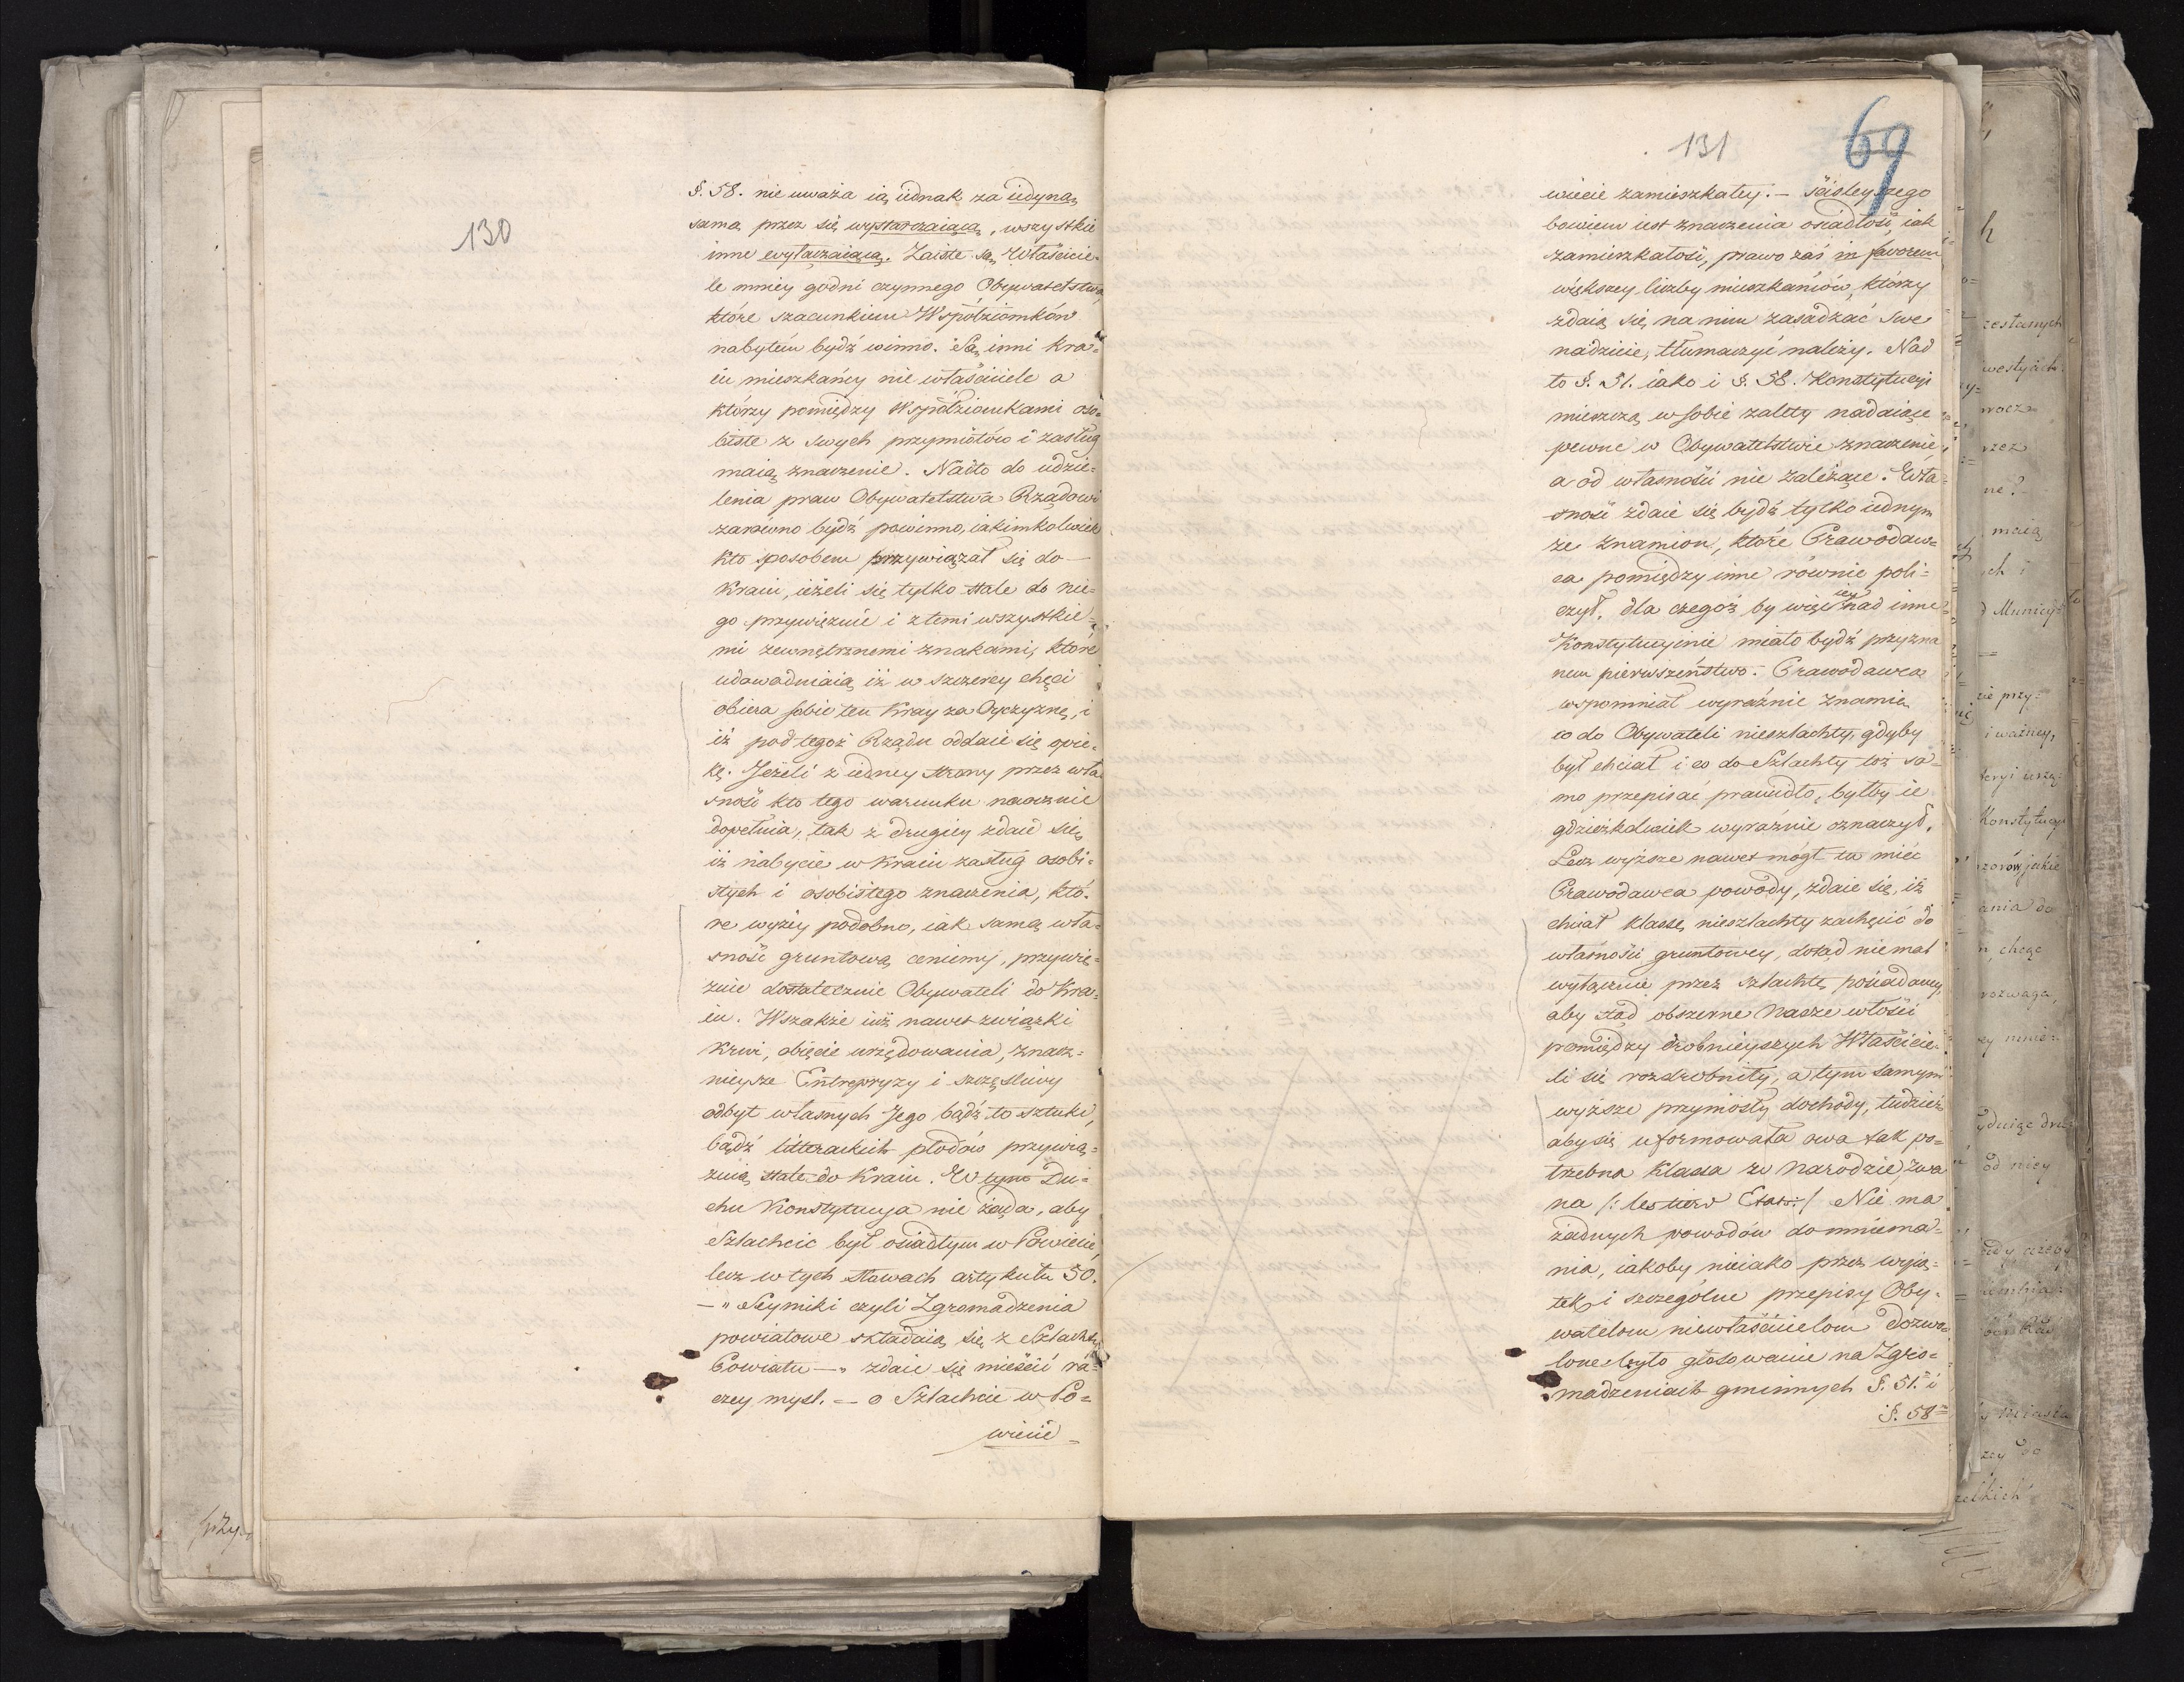 130
§. 58. nie uważa ią iednak za iedyną,
samą przez się wystarczaiącą, wszystkie
inne wyłączaiącą. Zaiste są Właścicie-
le mniey godni czynnego Obywatelstwa,
które szacunkiem Współziomków
nabytem bydź winno. Są inni Kra-
iu mieszkańcy nie właściciele a
którzy pomiędzy Współziomkami oso-
biste z swych przymiotów i zasług
maią znaczenie. Nadto do udzie-
lenia praw Obywatelstwa Rządowi
zarówno bydź powinno, iakimkolwiek
kto sposobem przywiązał się do
Kraiu, ieżeli się tylko stale do nie-
go przywięzuie i z temi wszystkie-
mi zewnętrznemi znakami, które
udowadniaią iż w szczerey chęci
obiera sobie ten Kray za Oyczyznę, i
iż pod tegoż Rządu oddaie się opie-
kę. Jeżeli z iedney strony przez wła-
sność kto tego warunku naocznie
dopełnia, tak z drugiey zdaie się
iż nabycie w Kraiu zasług osobi-
stych i osobistego znaczenia, któ-
re wyżey podobno, iak samą wła-
sność gruntową cenimy, przywię-
zuie dostatecznie Obywateli do Kra-
iu. Wszakże iuż nawet związki
Krwi, obięcie urzędowania, znacz-
nieysze Entrepryzy i szczęśliwy
odbyt własnych Jego bądź to sztuki,
bądź litterackich płodów przywią-
zuią stale do Kraiu. W tym Du-
chu Konstytucya nie żąda, aby
Szlachcic był osiadłym w Powiecie,
lecz w tych słowach artykułu 50.
— „ Seymiki czyli Zgromadzenia
powiatowe składaią się z Szlachty
Powiatu — „ zdaie się mieścić ra-
czey myśl. — o Szlachcie w Po-
wiecie
131
69
wiecie zamieszkałey. — Ściśleyszego
bowiem iest znaczenia osiadłość, iak
zamieszkałość, prawo zaś in favorem
większey liczby mieszkańców, którzy
zdaią się na nim zasadzać swe
nadzieie, tłumaczyć należy. Nad
to §. 51. iako i §. 58. Konstytucyi
mieszczą w sobie zalety nadaiące
pewne w Obywatelstwie znaczenie,
a od własności nie zależące. Wła-
sność zdaie się bydź tylko iednym
ze znamion, które Prawodaw-
ca pomiędzy inne równie poli-
czył, dla czegoż by więc iey nad inne
Konstytucyinie miało bydź przyzna
nem pierwszeństwo. Prawodawca
wspomniał wyraźnie znamie
co do Obywateli nieszlachty, gdyby
był chciał i co do Szlachty toż sa-
mo przepisać prawidło, byłby ie
gdzieżkolwiek wyraźnie oznaczył.
Lecz wyższe nawet mógł tu mieć
Prawodawca powody, zdaie się, iż
chciał klassę nieszlachty zachęcić do
własności gruntowey, dotąd niemal
wyłącznie przez szlachtę posiadaney,
aby stąd obszerne Nasze włości
pomiędzy drobnieyszych Właścicie-
li się rozdrobniły, a tym samym
wyższe przyniosły dochody, tudzież
aby się uformowała owa tak po-
trzebna Klassa w Narodzie, zwa
na /: les tiers Etat :/ Nie ma
żadnych powodów do mniema-
nia, iakoby nieiako przez wyią-
tek i szczególne przepisy Oby-
watelom niewłaścicielom dozwo-
lone było głosowanie na Zgro-
madzeniach gminnych §. 51. i
§. 58